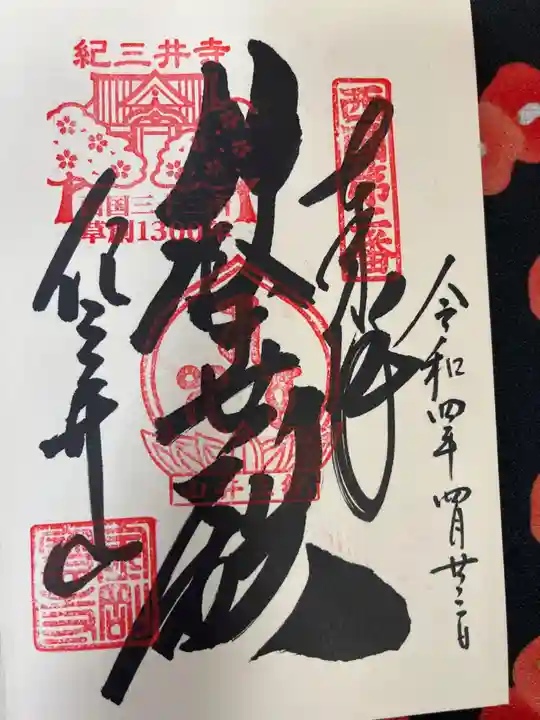 令和四年四月廿三日
奉拝
西国第二番
救世殿
紀三井山
紀三井寺
西国三十三所
草創1300年